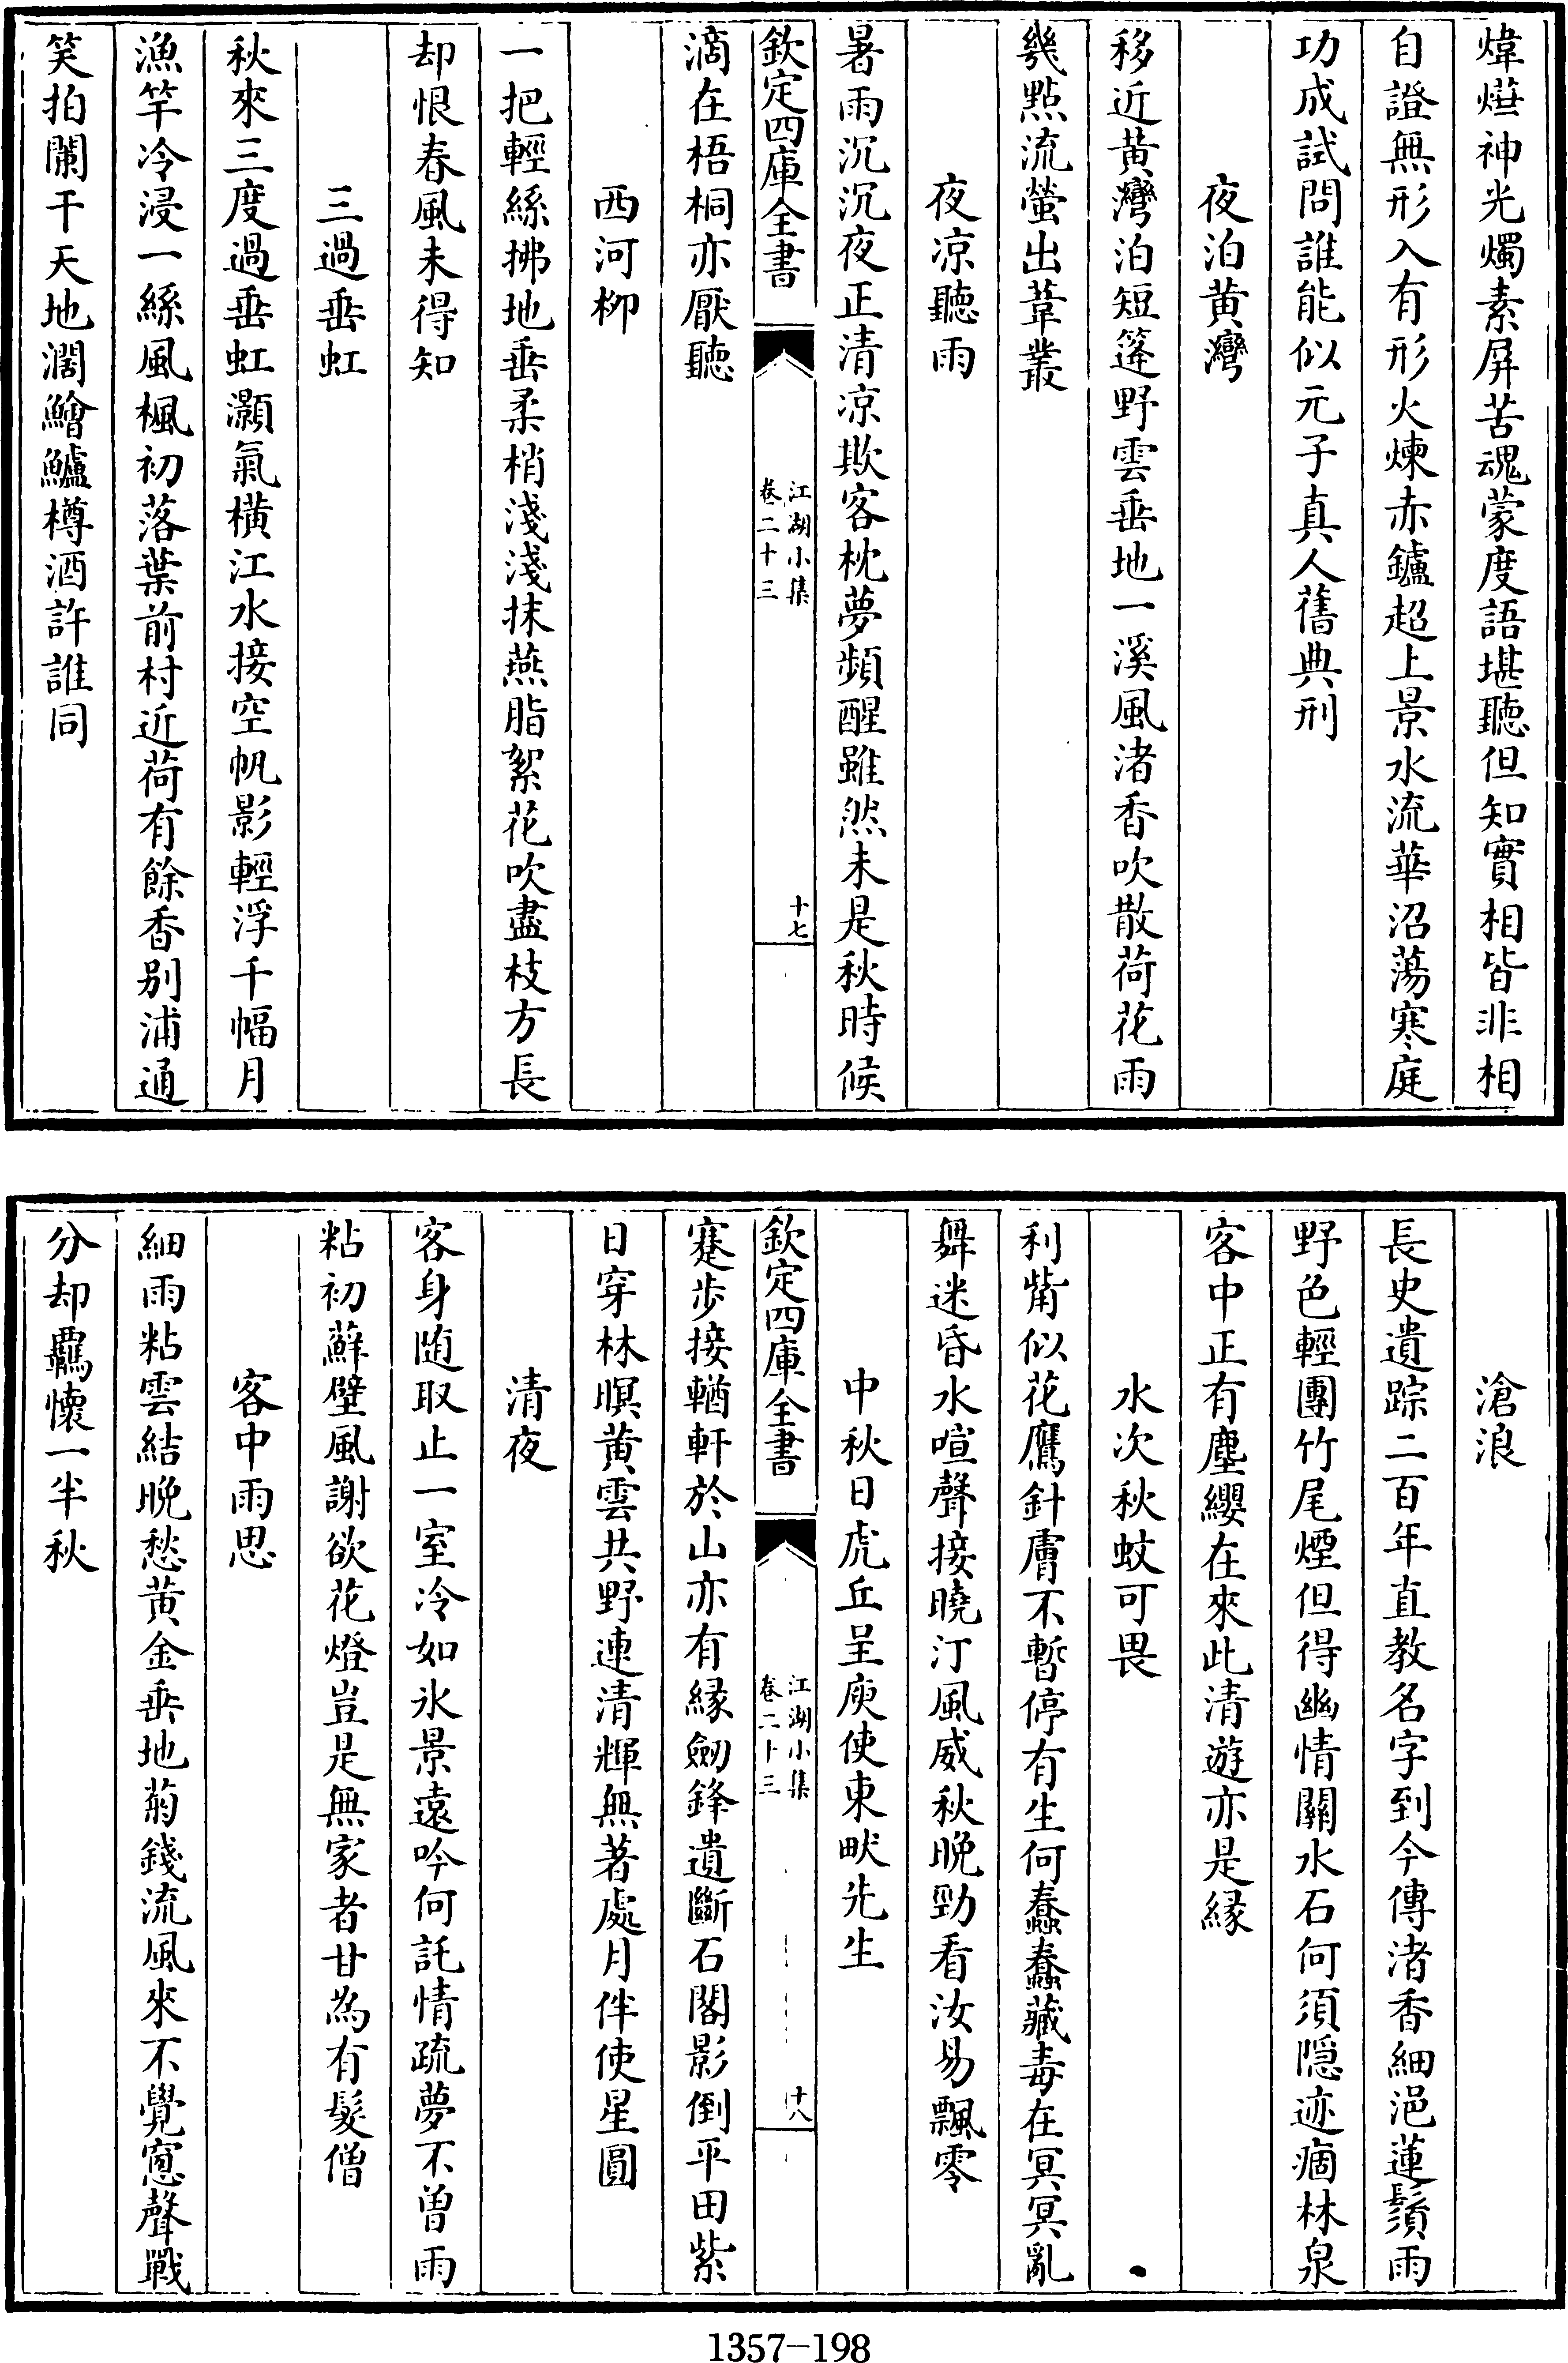 煒㷸神光燭素屏苦魂蒙度語堪聽但知實相皆非相
自證無形入有形火煉赤鑪超上景水流華沼蕩寒庭
功成試問誰能似元子真人舊典刑
夜泊黄灣
移近黄灣泊短篷野雲垂地一溪風渚香吹散荷花雨
幾點流螢出葦叢
夜凉聽雨
暑雨沉沉夜正清凉欺客枕夢頻醒雖然未是秋時候
欽定四庫全書
江湖小集
卷二十三
十七
滴在梧桐亦厭聽
西河柳
一把輕絲拂地垂柔梢淺淺抹燕脂絮花吹盡枝方長
却恨春風未得知
三過垂虹
秋來三度過垂虹灝氣橫江水接空帆影輕浮千幅月
漁竿冷浸一絲風楓初落葉前村近荷有餘香别浦通
笑拍闌干天地濶鱠鱸樽酒許誰同
滄浪
長史遺踪二百年直教名字到今傳渚香細浥蓮鬚雨
野色輕團竹尾煙但得幽情關水石何須隠迹痼林泉
客中正有塵纓在來此清遊亦是縁
水次秋蚊可畏
利觜似花鷹針膚不暫停有生何蠢蠢藏毒在冥冥亂
舞迷昏水喧聲接曉汀風威秋晚勁看汝易飄零
中秋日虎丘呈庾使東畎先生
欽定四庫全書
江湖小集
卷二十三
十八
蹇步接輶軒於山亦有縁劒鋒遺斷石閣影倒平田紫
日穿林暝黄雲共野連清輝無著處月伴使星圓
清夜
客身随取止一室冷如氷景遠吟何託情疏夢不曽雨
粘初蘚壁風謝欲花燈豈是無家者甘為有髮僧
客中雨思
細雨粘雲結晚愁黄金垂地菊錢流風來不覺窻聲戰
分却羈懷一半秋
1357-198